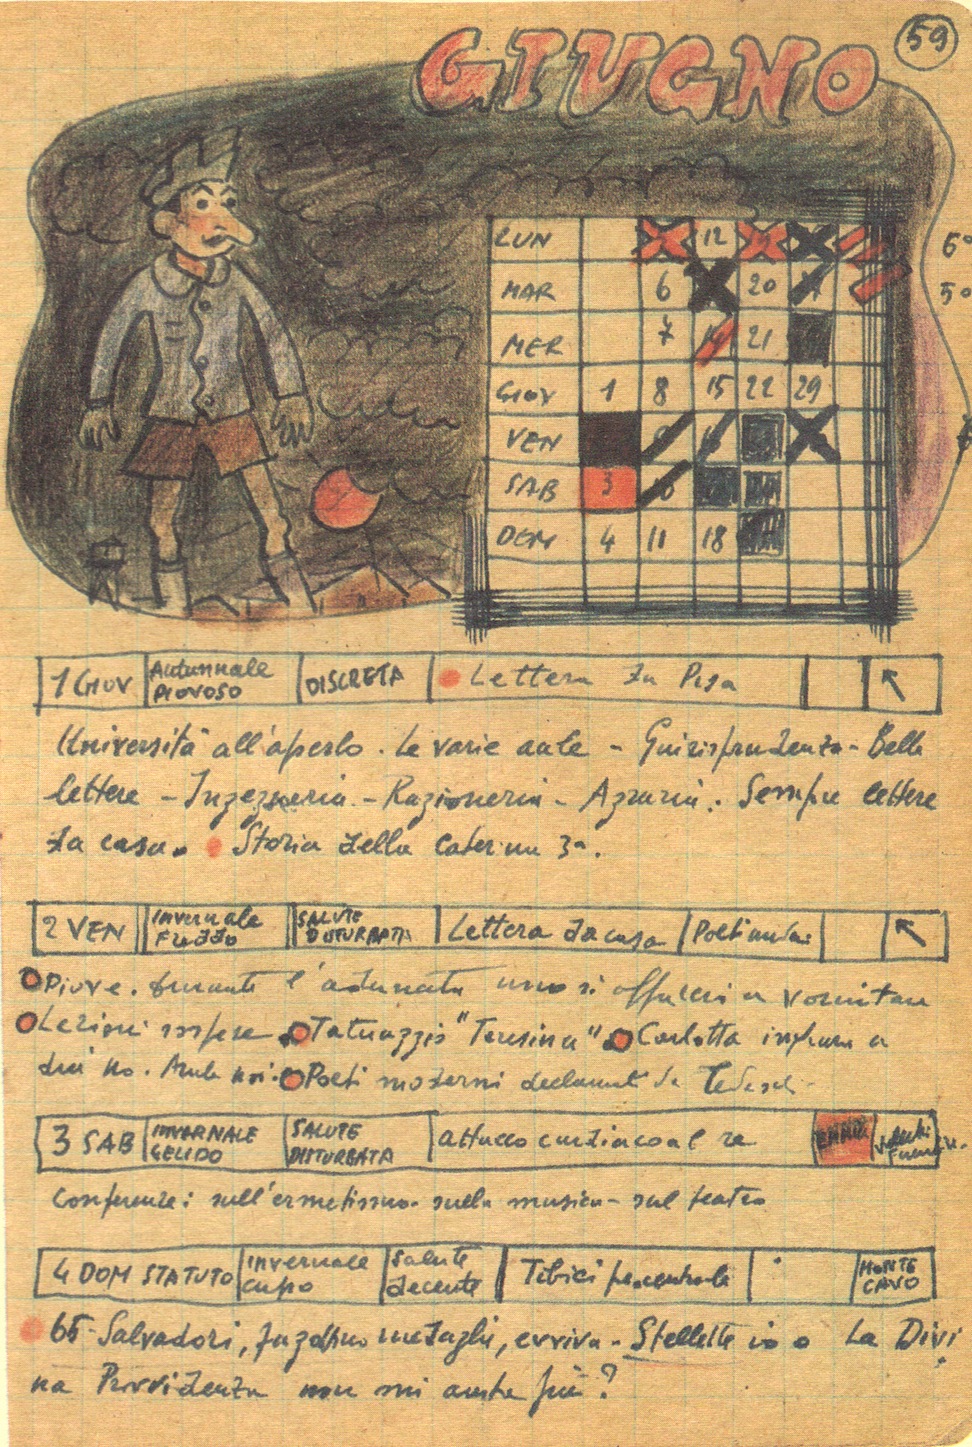 GIUGNO
59
LUN 12
MAR 6 20
MER 7 14 21
GIOV 1 8 15 22 29
VEN
SAB 3
DOM 4 11 18
6°
5°
1 GIOV Autunnale PIOVOSO DISCRETA Lettera da Pisa
Università all'aperto. Le varie aule - Guirisprudenza - Belle
lettere - Ingegneria - Ragioneria - Agraria. Sempre lettere
da casa. Storia della Caterina 3a.
2 VEN invernale FREDDO SALUTE DISTURBATA Lettera da casa Poeti
Piove. Durante l'adunata uno si offusca e
Lezioni Tatuaggio "Teresina" Carlotta
noi. Poeti moderni da
3 SAB INVERNALE GELIDO SALUTE DISTURBATA attacco cardiaco al re
Conferenze: sull'ermetismo - sulla musica - sul teatro
4 DOM STATUTO invernale cupo Salute decente Tibici MONTE CAVO
65 - Salvadori, medaglie, evviva - Stellette io o La Divi
na Provvidenza non mi aiuta più?